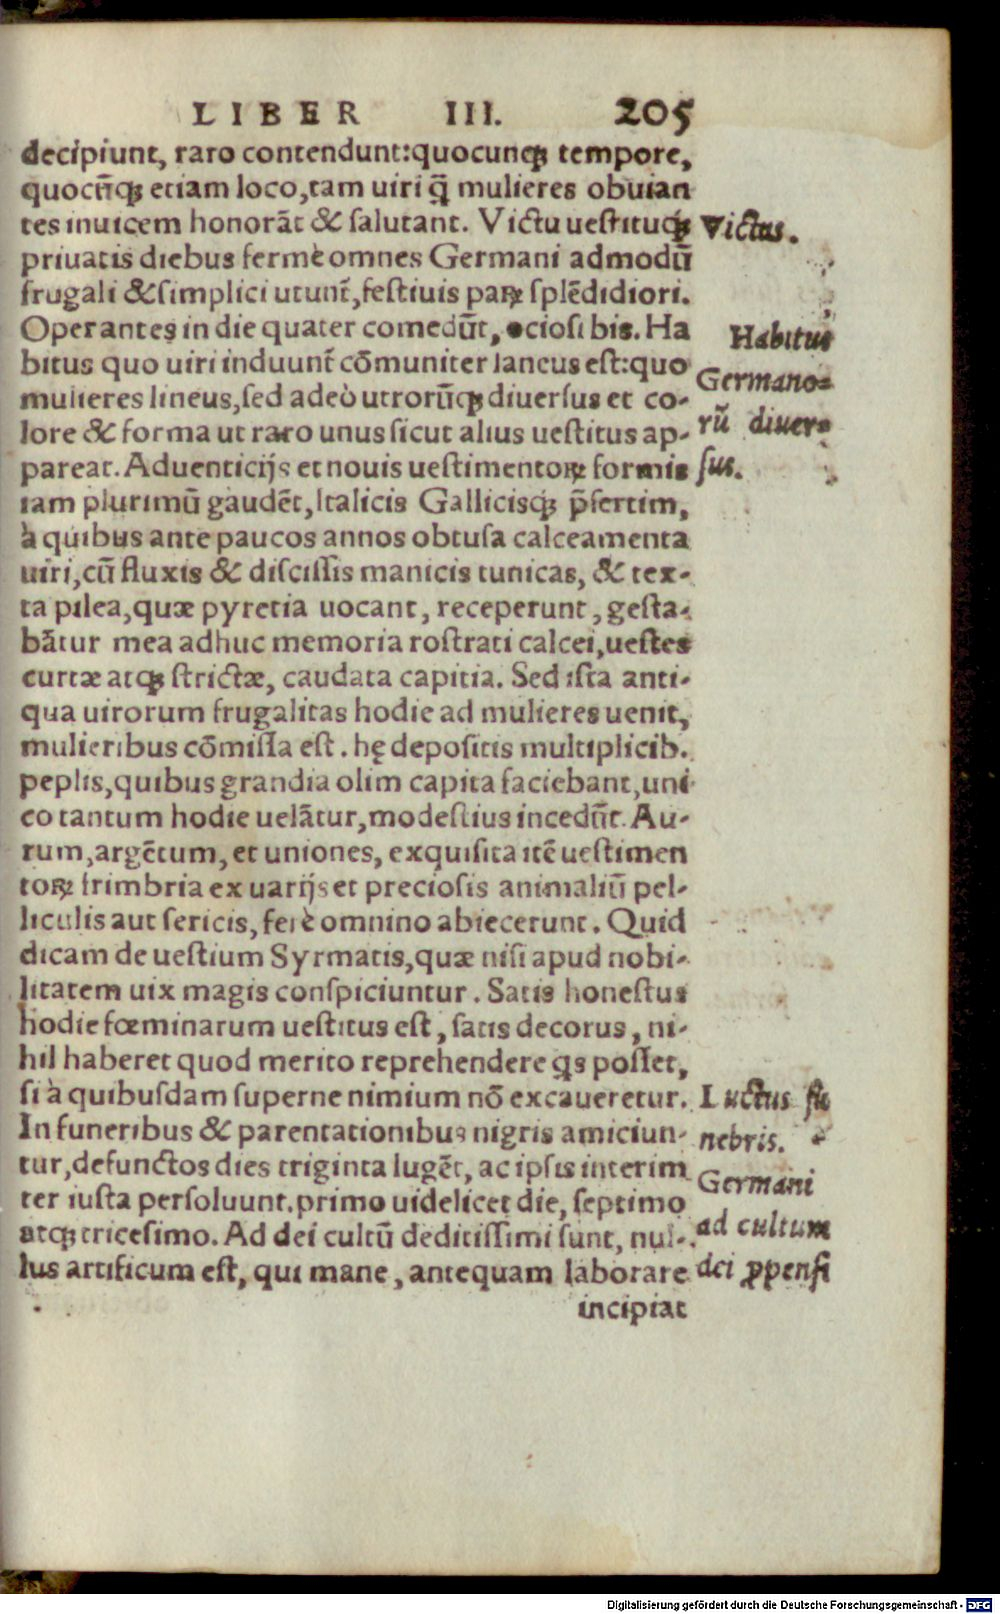 LIBER III. 205
decipiunt, raro contendunt: quocunqꝫ tempore,
quocũqꝫ etiam loco, tam uiri q̃ mulieres obuian
tes inuicem honorãt & salutant. Victu uestituqꝫ
Victus.
priuatis diebus fermè omnes Germani admodũ
frugali & simplici utunt̃, festiuis paꝝ splẽdidiori.
Operantes in die quater comedũt, ociosi bis. Ha
Habitus
bitus quo uiri induunt̃ cõmuniter laneus est: quo
Germano=
mulieres lineus, sed adeò utrorũqꝫ diuersus et co-
rũ diuer=
lore & forma ut raro unus sicut alius uestitus ap-
pareat. Aduenticijs et nouis uestimentoꝝ formis
sus.
iam plurimũ gaudẽt, Italicis Gallicisqꝫ p̃sertim,
à quibus ante paucos annos obtusa calceamenta
uiri, cũ fluxis & discissis manicis tunicas, & tex-
ta pilea, quæ pyretia uocant, receperunt, gesta-
bãtur mea adhuc memoria rostrati calcei, uestes
curtæ atqꝫ strictæ, caudata capitia. Sed ista anti-
qua uirorum frugalitas hodie ad mulieres uenit,
mulieribus cõmissa est. hę depositis multiplicib.
peplis, quibus grandia olim capita faciebant, uni
co tantum hodie uelãtur, modestius incedũt. Au-
rum, argẽtum, et uniones, exquisita itẽ uestimen
toꝝ frimbria ex uarijs et preciosis animaliũ pel-
liculis aut sericis, ferè omnino abiecerunt. Quid
dicam de uestium Syrmatis, quæ nisi apud nobi-
litatem uix magis conspiciuntur. Satis honestus
hodie fœminarum uestitus est, satis decorus, ni-
hil haberet quod merito reprehendere qs posset,
si à quibusdam superne nimium nõ excaueretur.
Luctus fu
In funeribus & parentationibus nigris amiciun-
nebris.
tur, defunctos dies triginta lugẽt, ac ipsis interim
Germani
ter iusta persoluunt. primo uidelicet die, septimo
atqꝫ tricesimo. Ad dei cultũ deditissimi sunt, nul-
ad cultum
lus artificum est, qui mane, antequam laborare
dei ꝓpensi
incipiat
Digitalisierung gefördert durch die Deutsche Forschungsgemeinschaft - DFG